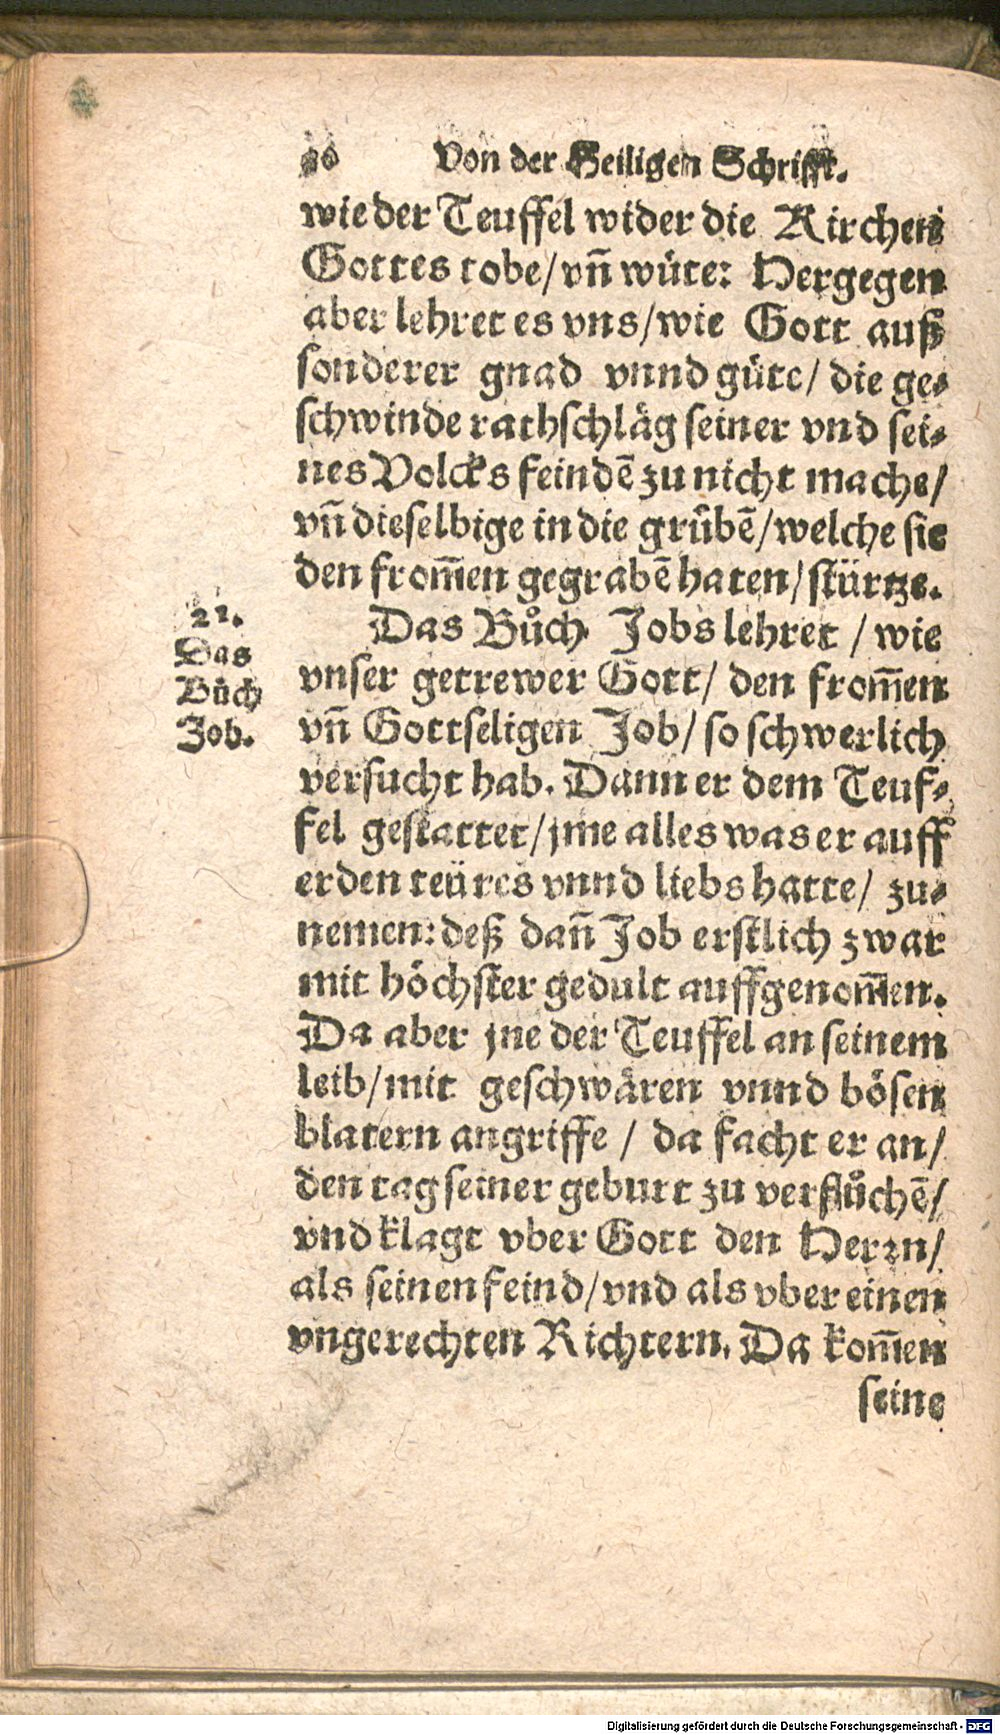 Von der Heiligen Schrifft.
wie der Teuffel wider die Kirchen
Gottes tobe/vn̄ wüte: Hergegen
aber lehret es vns/wie Gott auß
sonderer gnad vnnd güte/ die ge⸗
schwinde rathschläg seiner vnd sei⸗
nes Volcks feindē zu nicht mache/
vn̄ dieselbige in die grůbē/welche sie
den from̄en gegrabē haten/stürtze.
21.
Das
Bůch
Job.
Das Bůch Jobs lehret / wie
vnser getrewer Gott/ den from̄en
vn̄ Gottseligen Job/ so schwerlich
versucht hab. Dann er dem Teuf⸗
fel gestattet/jme alles was er auff
erden teüres vnnd liebs hatte/ zu⸗
nemen: deß dan̄ Job erstlich zwar
mit höchster gedult auffgenom̄en.
Da aber jne der Teuffel an seinem
leib/mit geschwären vnnd bösen
blatern angriffe / da facht er an/
den tag seiner geburt zu verflůchē/
vnd klagt vber Gott den Herꝛn/
als seinen feind/vnd als vber einen
vngerechten Richtern. Da kom̄en
seine
Digitalisierung gefördert durch die Deutsche Forschungsgemeinschaft - DFG